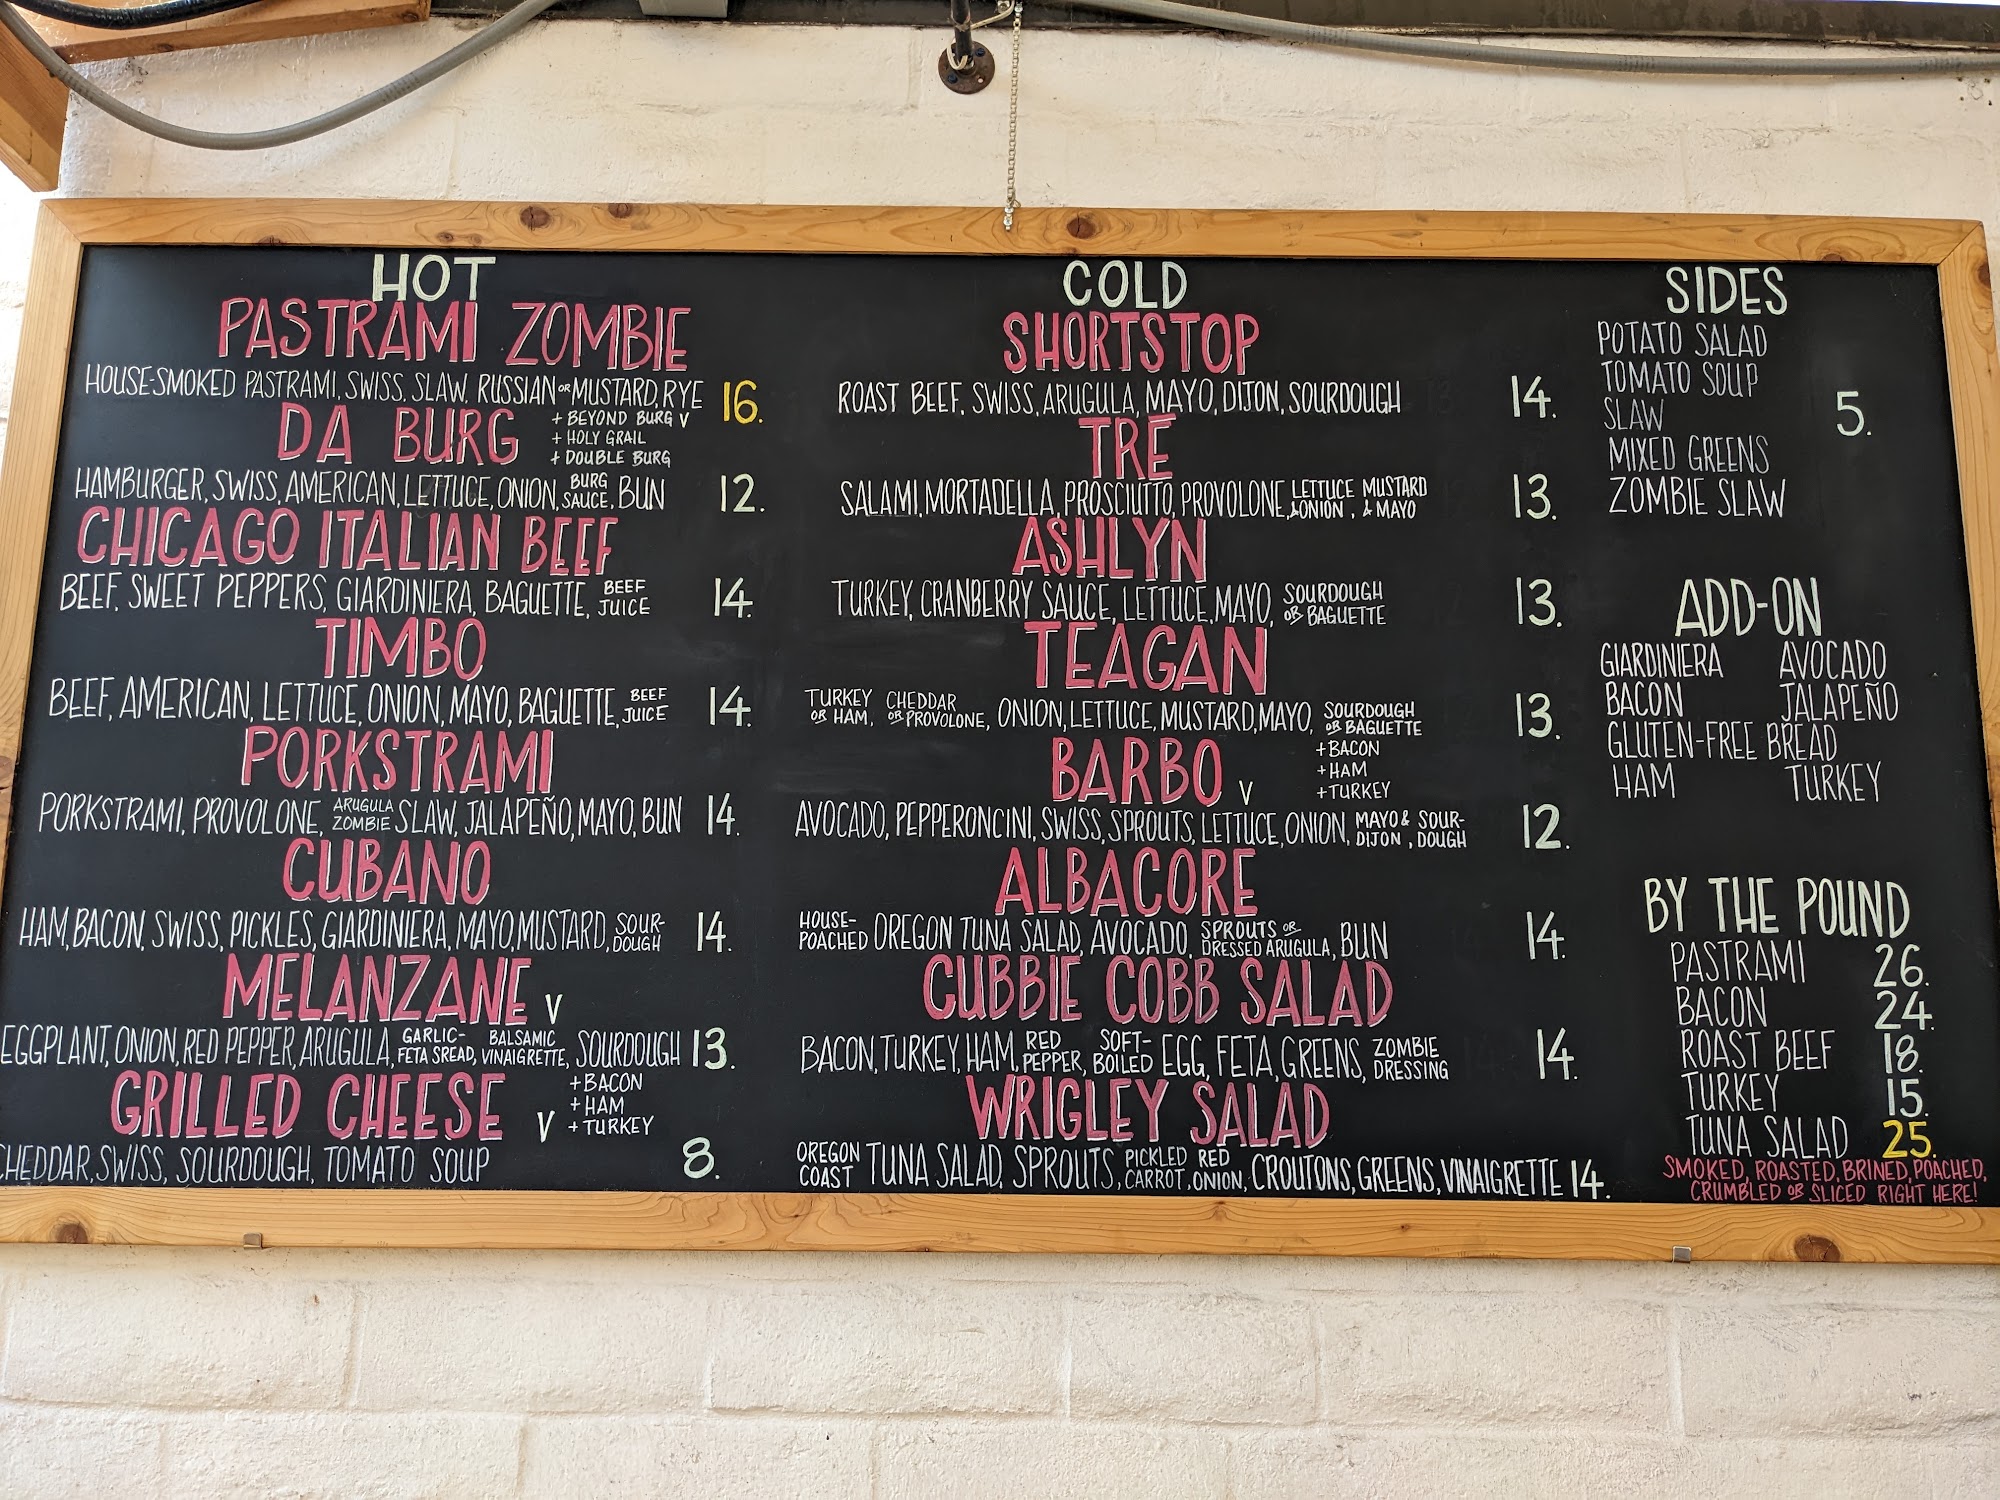 HOT
PASTRAMI ZOMBIE
HOUSE-SMOKED PASTRAMI, SWISS, SLAW, RUSSIAN OR MUSTARD, RYE 16.
DA BURG
+ BEYOND BURG V
+ HOLY GRAIL
+ DOUBLE BURG
HAMBURGER, SWISS, AMERICAN, LETTUCE, ONION, BURG SAUCE, BUN 12.
CHICAGO ITALIAN BEEF
BEEF, SWEET PEPPERS, GIARDINIERA, BAGUETTE, BEEF JUICE 14.
TIMBO
BEEF, AMERICAN, LETTUCE, ONION, MAYO, BAGUETTE, BEEF JUICE 14.
PORKSTRAMI
PORKSTRAMI, PROVOLONE, ARUGULA ZOMBIE SLAW, JALAPEÑO, MAYO, BUN 14.
CUBANO
HAM, BACON, SWISS, PICKLES, GIARDINIERA, MAYO, MUSTARD, SOUR-DOUGH 14.
MELANZANE V
EGGPLANT, ONION, RED PEPPER, ARUGULA, GARLIC-FETA SREAD, BALSAMIC VINAIGRETTE, SOURDOUGH 13.
GRILLED CHEESE V
+ BACON
+ HAM
+ TURKEY
CHEDDAR, SWISS, SOURDOUGH, TOMATO SOUP 8.
COLD
SHORTSTOP
ROAST BEEF, SWISS, ARUGULA, MAYO, DIJON, SOURDOUGH 14.
TRE
SALAMI, MORTADELLA, PROSCIUTTO, PROVOLONE, LETTUCE & ONION, MUSTARD & MAYO 13.
ASHLYN
TURKEY, CRANBERRY SAUCE, LETTUCE, MAYO, SOURDOUGH OR BAGUETTE 13.
TEAGAN
TURKEY OR HAM, CHEDDAR OR PROVOLONE, ONION, LETTUCE, MUSTARD, MAYO, SOURDOUGH OR BAGUETTE 13.
BARBO V
+ BACON
+ HAM
+ TURKEY
AVOCADO, PEPPERONCINI, SWISS, SPROUTS, LETTUCE, ONION, MAYO & DIJON, SOUR-DOUGH 12.
ALBACORE
HOUSE-POACHED OREGON TUNA SALAD, AVOCADO, SPROUTS OR DRESSED ARUGULA, BUN 14.
CUBBIE COBB SALAD
BACON, TURKEY, HAM, RED PEPPER, SOFT-BOILED EGG, FETA, GREENS, ZOMBIE DRESSING 14.
WRIGLEY SALAD
OREGON COAST TUNA SALAD, SPROUTS, PICKLED CARROT, RED ONION, CROUTONS, GREENS, VINAIGRETTE 14.
SIDES
POTATO SALAD
TOMATO SOUP
SLAW 5.
MIXED GREENS
ZOMBIE SLAW
ADD-ON
GIARDINIERA AVOCADO
BACON JALAPEÑO
GLUTEN-FREE BREAD
HAM TURKEY
BY THE POUND
PASTRAMI 26.
BACON 24.
ROAST BEEF 18.
TURKEY 15.
TUNA SALAD 25.
SMOKED, ROASTED, BRINED, POACHED,
CRUMBLED OR SLICED RIGHT HERE!